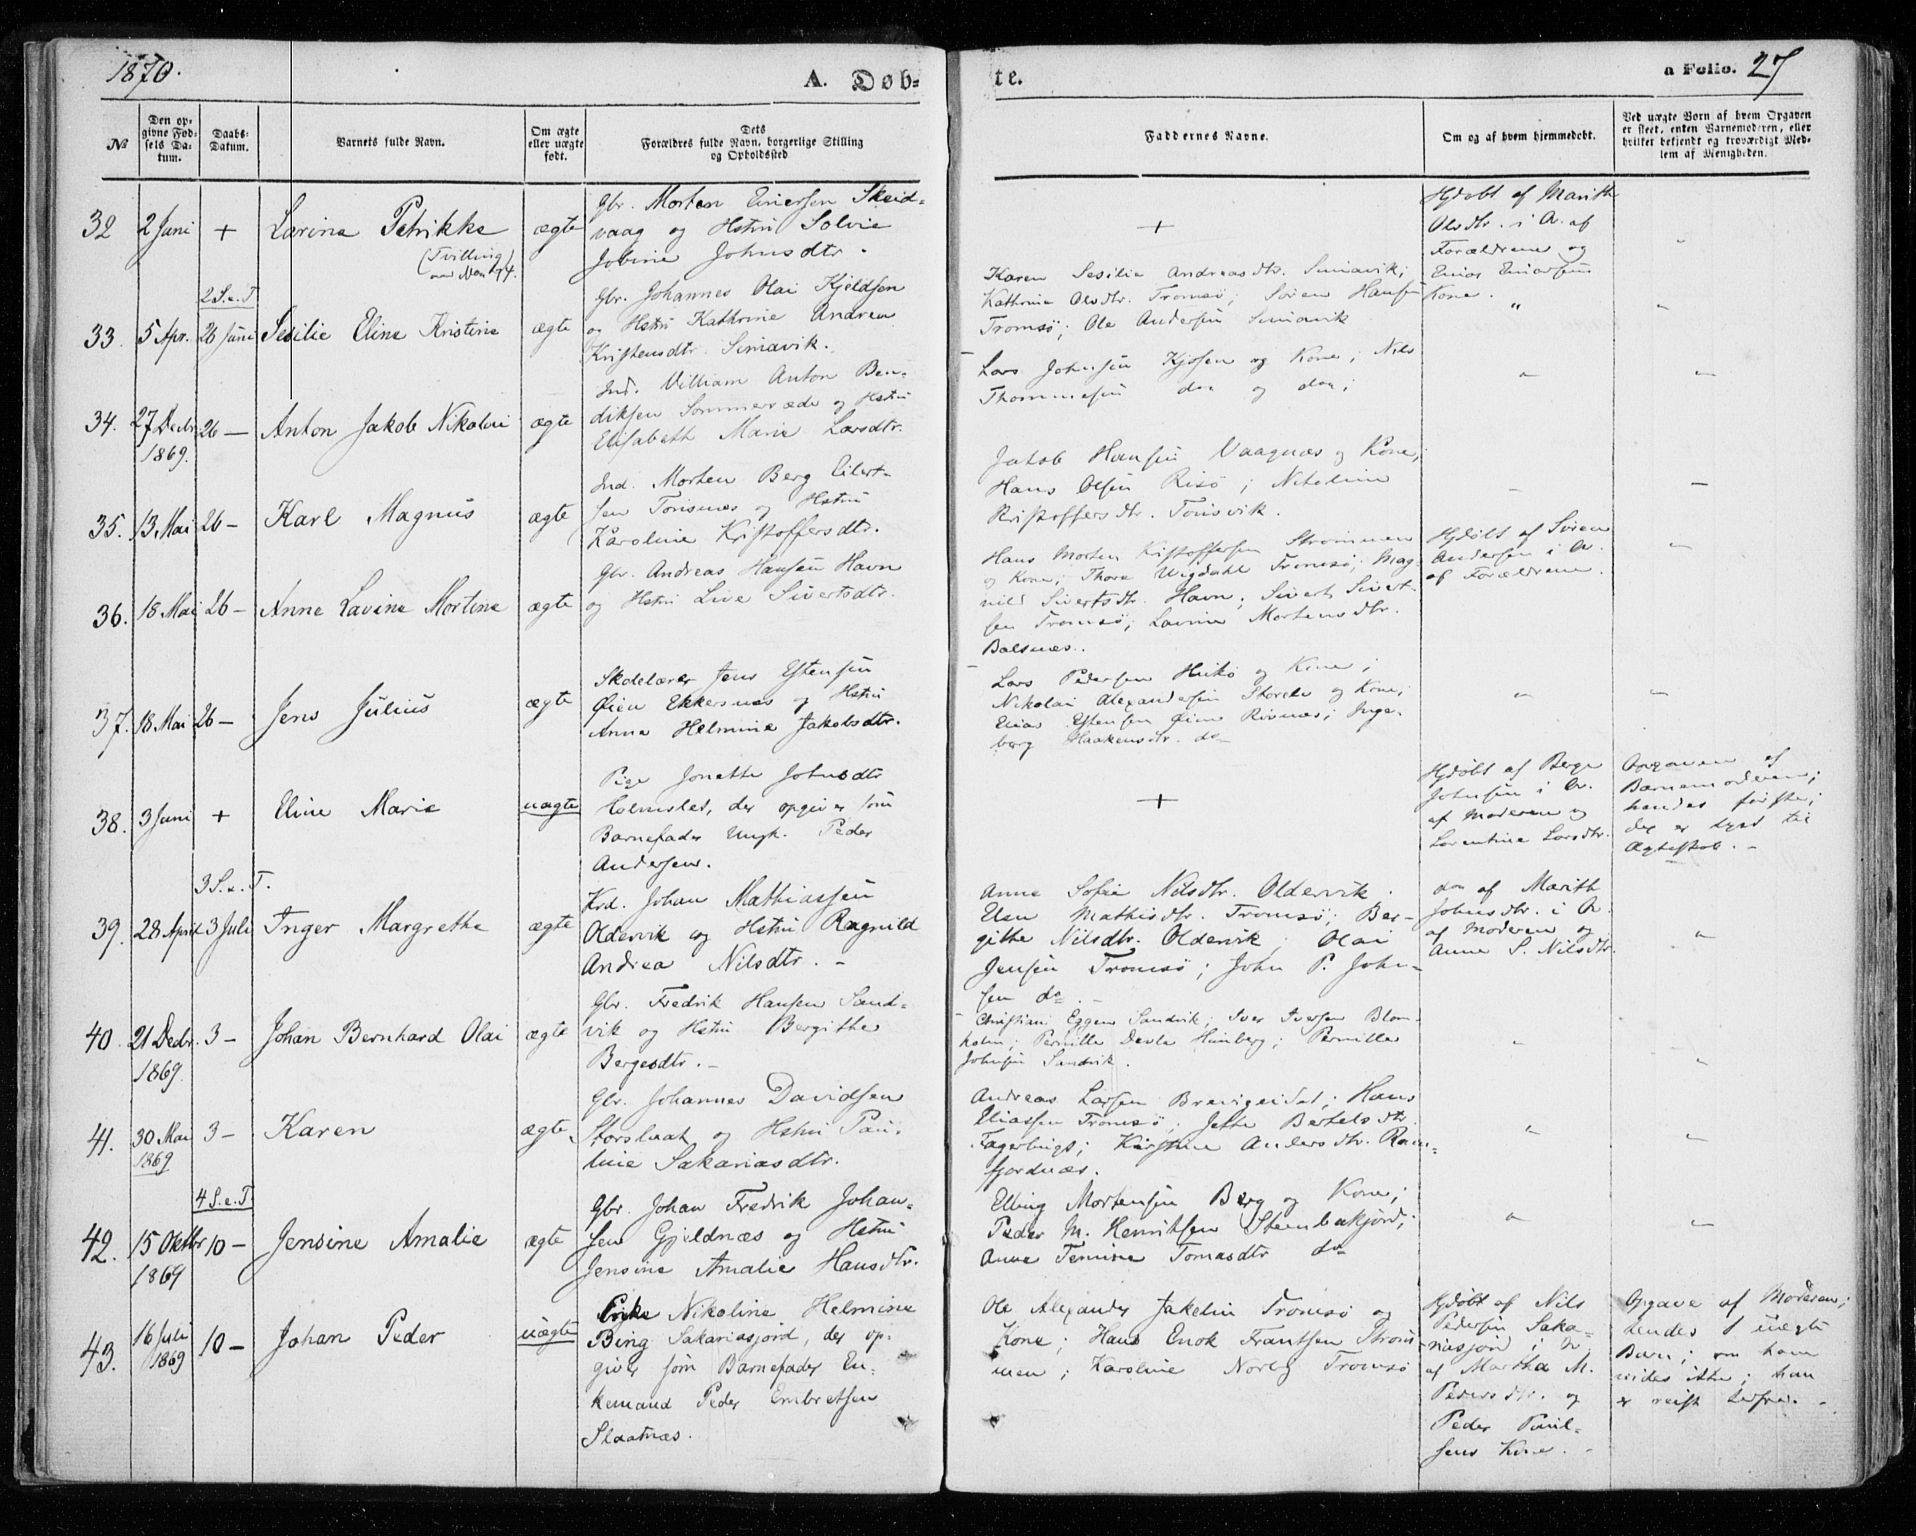 1870.
A. Døb-
te.
a Folio. 27
No
Den op-
givne Fød-
sels Da-
tum.
Daabs-
Datum.
Barnets fulde Navn.
Om ægte
eller uægte
født.
Dets
Forældres fulde Navn, borgerlige Stilling
og Opholdssted
Faddernes Navne.
Om og af hvem hjemmedøbt.
Ved uægte Børn af hvem Opgaven
er skeet, enten Barnemoderen, eller
hvilket bekjendt og troværdigt Med-
lem af Menigheden.
32 2 Juni + Larine Petrikke ægte
(Tvilling)
Gbr. Morten Einersen Skeid-
vaag og Hstru Solvie
Johnsdtr.
+
Hjdøbt af Marith
Olsdtr. i O. af
Forældrene og
Kone.
2 S. e. T.
33. 5 Apr. 26 Juni Sesilie Eline Kristine ægte
Gbr. Johannes Olai Kjeldsen
og Hstru Kathrine Andrea
Kristensdtr. Simavik.
Karen Sesilie Andreasdtr. Simavik;
Kathrine Olsdtr. Tromsø; Søren Hansen
Tromsø; Ole Andersen Simavik
34. 27 Decbr. 26 — Anton Jakob Nikolai ægte
1869.
Ind. William Anton Ben-
diksen og Hstru
Elisabeth Marie Larsdtr.
Lars Johnsen Kjosen og Kone; Nils
Thommesen do og do;
35. 13 Mai 26 — Karl Magnus ægte
Ind. Morten Berg Eilert-
sen Tønsnes og Hstru
Karoline Kristoffersdtr.
Jakob Hansen Vaagnæs og Kone;
Hans Olsen Risø;
Kristoffersdtr. Tønsvik.
36. 18 Mai 26 — Anne Lavine Mortine ægte
Gbr. Andreas Hansen Havn
og Hstru Live Sivertsdtr.
Hans Morten Kristoffersen Strømmen
og Kone; Thora Wigdahl Tromsø; Mag-
nild Sivertsdtr. Havn; Sivert Sivert-
sen Tromsø; Lavine Mortensdtr.
Balsnæs.
Hjdøbt af Søren
Andersen i O.
af Forældrene.
37. 18 Mai 26 — Jens Julius ægte
Skolelærer Jens Estensen
Øien Ekkersnes og Hstru
Anna Helmine Jakobsdtr.
Lars Pedersen og Kone;
Nikolai Alexandersen og Kone;
Elias Estensen Øien; Inge-
borg Haakensdtr. do
38. 3 Juni + Eline Marie uægte
Pige Jonette Johnsdtr
Holmslet, der opgiver som
Barnefader Ungk. Peder
Andersen.
+
Hjdøbt af Berge
Johnsen i O.
af Moderen og
Lorentine Larsdtr.
Opgaven af
Barnemoderen;
hendes første;
der er lyst til
Ægteskab. —
3 S. e. T.
39. 28 April 3 Juli Inger Margrethe ægte
Krd. Johan Mathiassen
Oldervik og Hstru Ragnild
Andrea Nilsdtr. —
Anne Sofie Nilsdtr. Oldervik.
Elen Mathisdtr. Tromsø; Ber-
githe Nilsdtr. Oldervik; Olai
Jensen Tromsø; John P. John-
sen do. —
do af Marith
Johnsdtr. i O.
af Moderen og
Anne S. Nilsdtr.
40. 21 Decbr. 3 — Johan Bernhard Olai ægte
1869.
Gbr. Fredrik Hansen Sand-
vik og Hstru Bergithe
Bergesdtr. —
Christian Eggen Sandvik; Iver Iversen Blom-
holm; Pernille Pernille
Johnsen Sandvik.
41. 30 Mai 3 — Karen ægte.
1869
Gbr. Johannes Davidsen
Storslaat og Hstru Pau-
line Sakariasdtr.
Andreas Larsen Breivigeidet; Hans
Eliassen Tromsø; Jette Bertelsdtr.
Fagerbugt; Kirstine Andersdtr. Ram-
fjordnæs.
4 S. e. T.
42. 15 Oktbr 10 — Jensine Amalie ægte
1869
Gbr. Johan Fredrik Johan-
sen Gjeldnæs og Hstru
Jensine Amalie Hansdtr.
Elling Mortensen Berg og Kone;
Peder M. Henriksen Stenbakjord;
Anne Temine Tomasdtr do
43. 16 Juli 10 — Johan Peder uægte
1869
Pige Nikoline Helmine
Bing Sakariasjord, der op-
giver som Barnefader En-
kemand Peder Embretsen
Slaatnæs.
Ole Alexander Jakobsen Tromsø og
Kone; Hans Enok Frantsen Strøm
men; Karoline Norby Tromsø
Hjdøbt af Nils
Pedersen Saka-
riasjord, i O.
af Martha M.
Pedersdtr. og
Peder Paul-
sens Kone. —
Opgave af Moderen;
hendes 1 uægte
Barn; om ham
vides ikke; han
er reist herfra. —